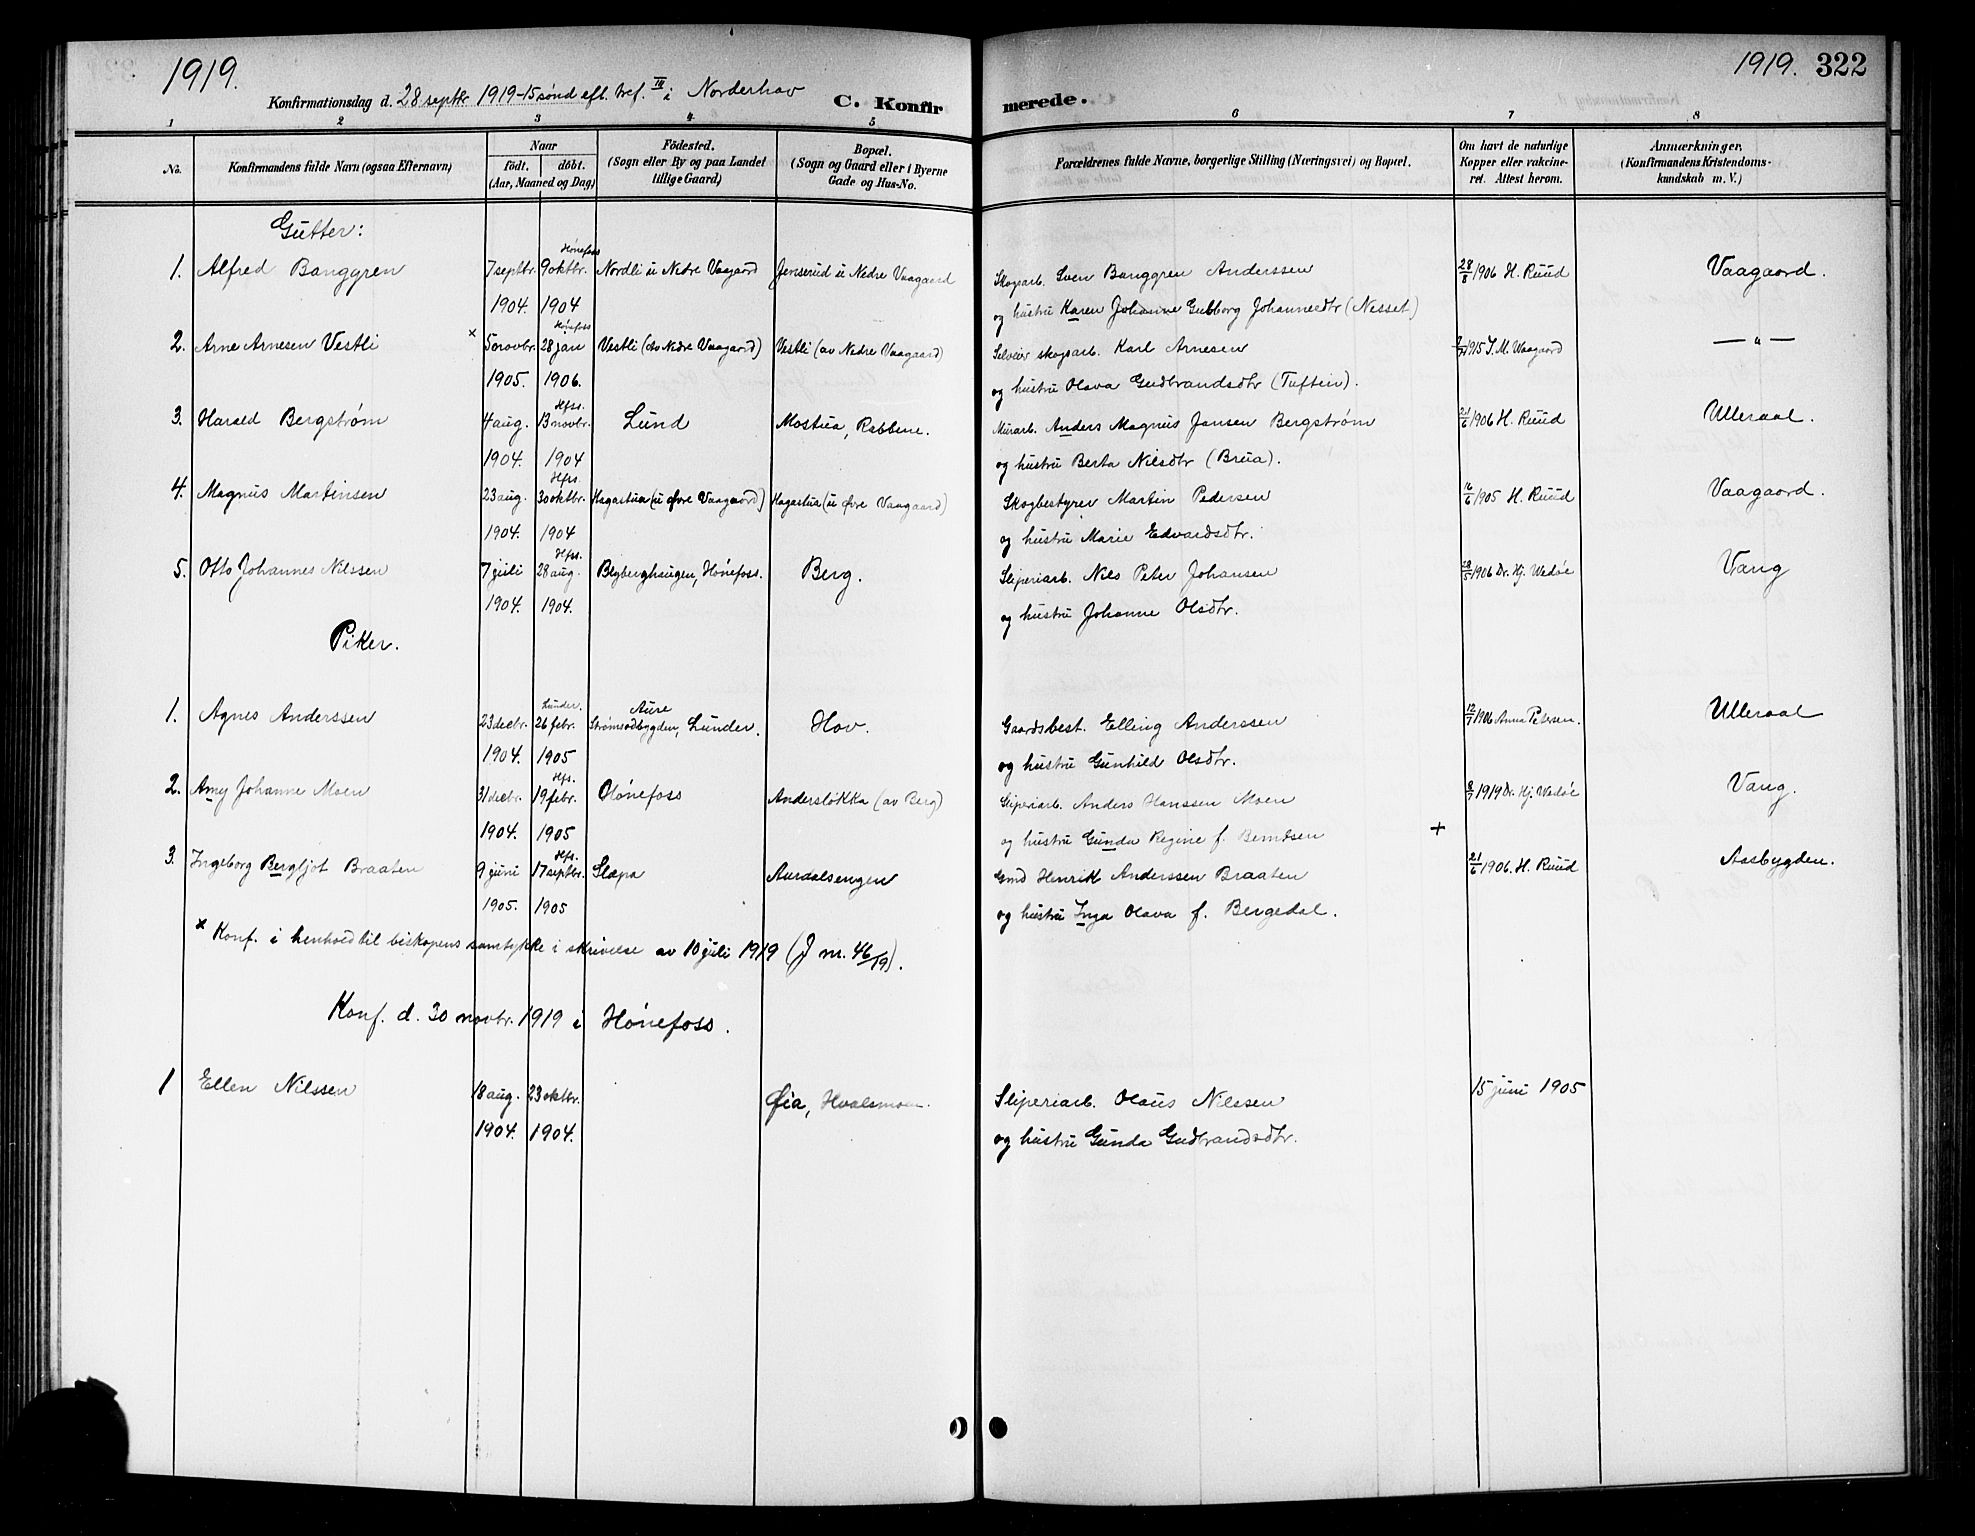 1919.
1919. 322
Konfirmationsdag d. 28 septbr 1919 - 15 sønd eft. tref. III i Norderhov C. Konfirmerede.
1 2 3 4 5 6 7 8
No.
Konfirmandens fulde Navn (ogsaa Efternavn)
Naar
födt. döbt.
(Aar, Maaned og Dag)
Födested.
(Sogn eller By og paa Landet
tillige Gaard)
Bopæl.
(Sogn og Gaard eller i Byerne
Gade og Hus-No.
Forældrenes fulde Navne, borgerlige Stilling (Næringsvei) og Bopæl.
Om havt de naturlige
Kopper eller vakcine-
ret. Attest herom.
Anmærkninger.
(Konfirmandens Kristendoms-
kundskab m. V.)
Gutter:
Hönefoss
1. Alfred Banggren 7 septbr. 9 oktbr. Nordli u Nedre Vaagaard Jenserud u Nedre Vaagaard Skogsarb. Sven Banggren Anderssen 28/8 1906 H. Ruud Vaagaard.
1904. 1904 og hustru Karen Johanne Gubborg Johannesdtr (Nesset)
Hönefoss
2. Arne Arnesen Vestli × 5 novbr. 28 jan Vestli (av Nedre Vaagaard) Vestli (av Nedre Vaagaard) Selveier skogsarb. Karl Arnesen 1915 J. M. Waagaard — " —
1905. 1906. og hustru Olava Gudbrandsdtr (Tuftin).
Hfss.
3. Harald Bergstrøm 4 aug. 13 novbr. Lund Mostua, Rabbene. Murarb. Anders Magnus Jansen Bergstrøm 21/6 1906 H. Ruud Ulleraal.
1904. 1904 og hustru Berta Nilsdtr (Brua).
Hfss.
4. Magnus Martinsen 23 aug. 30 oktbr. Hagastua (u Øvre Vaagaard) Hagastua (u Øvre Vaagaard) Skogbestyrer Martin Pedersen 16/6 1905 H. Ruud Vaagaard.
1904. 1904 og hustru Marie Edvardsdtr.
Hfss.
5. Otto Johannes Nilssen 7 juli 28 aug. Blyberghaugen, Hönefoss. Berg. Sliperiarb. Nils Peter Johansen 28/5 1906 Dr. Hj. Wedøe Vang
1904. 1904. og hustru Johanne Olsdtr.
Piker.
Lunder. Aure
1. Agnes Anderssen 23 decbr. 26 febr. Strømsodbygden, Lunder. Hov. Gaardsbest. Elling Anderssen 12/7 1906 Anna Petersen. Ulleraal
1904. 1905 og hustru Gunhild Olsdtr.
Hfs.
2. Amy Johanne Moen 31 decbr. 19 febr. Hönefoss Andersløkka (av Berg) Sliperiarb. Anders Hanssen Moen 8/7 1919 Dr. Hj. Wedøe Vang.
1904. 1905 og hustru Gunda Regine f. Berntsen +
Hfs.
3. Ingeborg Bergljot Braaten 9 juni 17 septbr. Slæpa Aurdalsengen Gmd Henrik Anderssen Braaten 21/6 1906. H. Ruud Aasbygden.
1905. 1905 og hustru Inga Olava f. Bergedal.
× Konf. i henhold til biskopens samtykke i skrivelse av 10 juli 1919 (J nr. 46/19).
Konf. d. 30 novbr. 1919 i Hönefoss.
1 Ellen Nilssen 18 aug. 23 oktbr. Øia, Hvalsmoen. Sliperiarb. Olaus Nilssen 15 juni 1905
1904. 1904. og hustru Gunda Gudbrandsdtr.